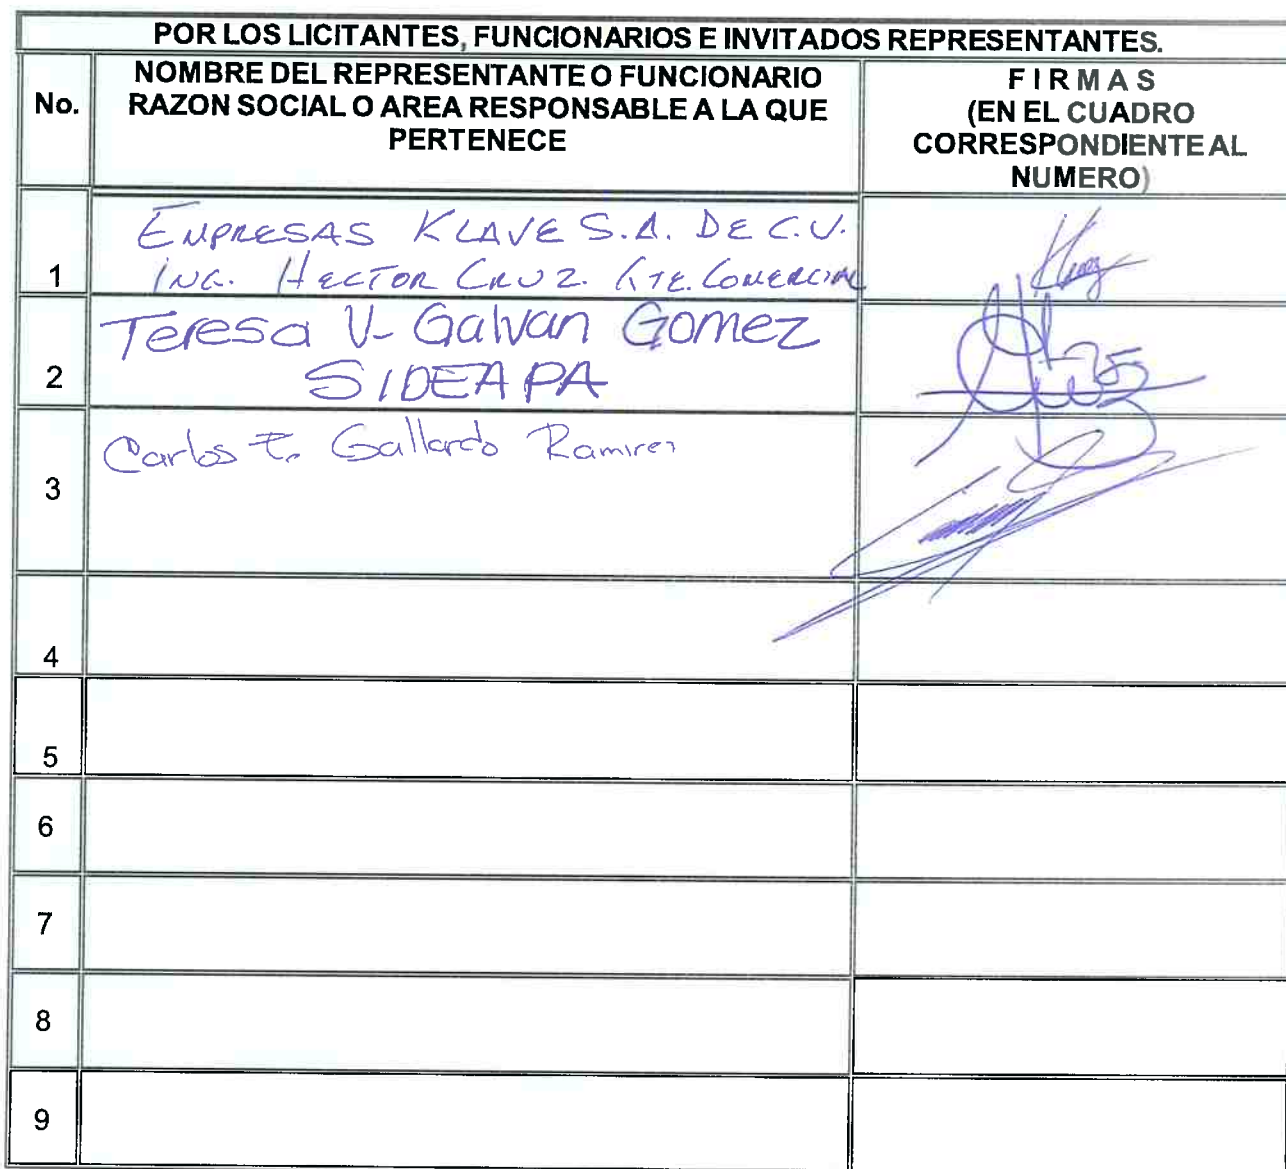 POR LOS LICITANTES, FUNCIONARIOS E INVITADOS REPRESENTANTES.
No.
NOMBRE DEL REPRESENTANTE O FUNCIONARIO
RAZON SOCIAL O AREA RESPONSABLE A LA QUE
PERTENECE
F I R M A S
(EN EL CUADRO
CORRESPONDIENTE AL
NUMERO)
1
EMPRESAS KLAVE S.A. DE C.V.
ING. HECTOR CRUZ. GTE. COMERCIAL
2
Teresa V. Galvan Gomez
SIDEAPA
3
Carlos E. Gallardo Ramirez
4
5
6
7
8
9